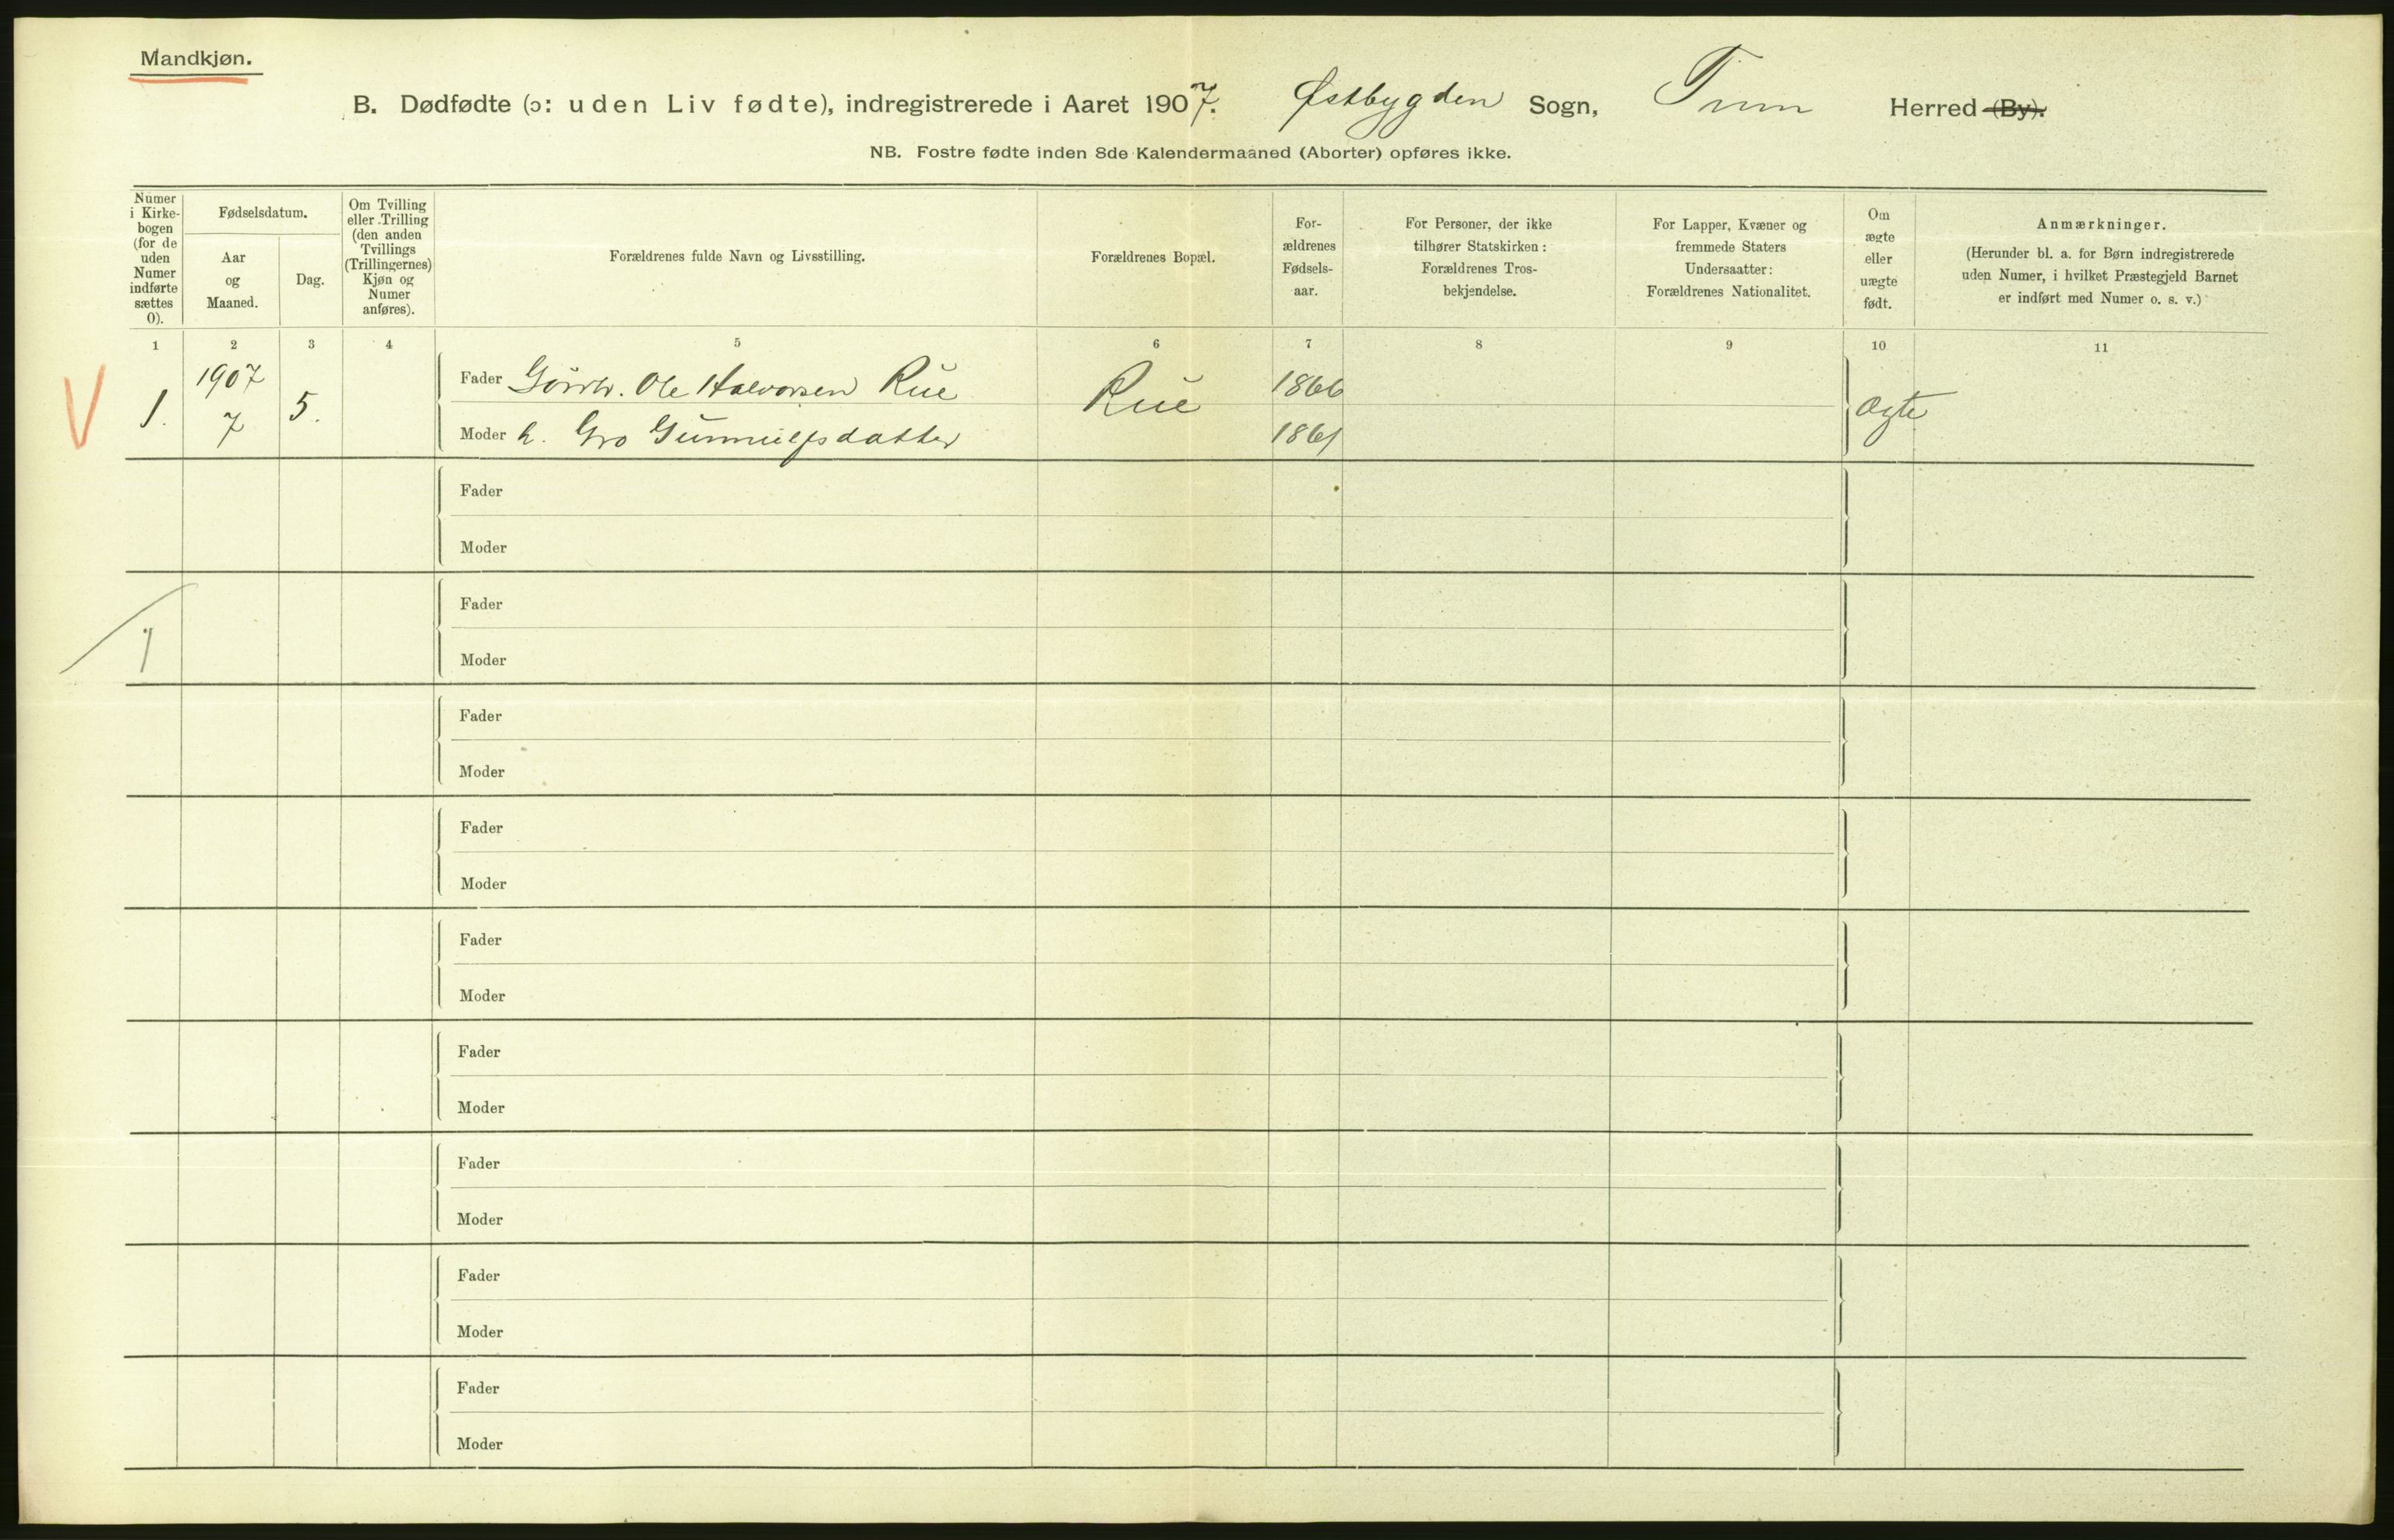 Mandkjøn.
B. Dødfødte (ɔ: uden Liv fødte), indregistrerede i Aaret 1907. Østbygden Sogn, Tinn Herred (By).
NB. Fostre fødte inden 8de Kalendermaaned (Aborter) opføres ikke.
Numer
i Kirke-
bogen
(for de
uden
Numer
indførte
sættes
0).
Fødselsdatum.
Aar
og
Maaned.
Dag.
Om Tvilling
eller Trilling
(den anden
Tvillings
(Trillingernes)
Kjøn og
Numer
anføres).
Forældrenes fulde Navn og Livsstilling.
Forældrenes Bopæl.
For-
ældrenes
Fødsels-
aar.
For Personer, der ikke
tilhører Statskirken:
Forældrenes Tros-
bekjendelse.
For Lapper, Kvæner og
fremmede Staters
Undersaatter:
Forældrenes Nationalitet.
Om
ægte
eller
uægte
født.
Anmærkninger.
(Herunder bl. a. for Børn indregistrerede
uden Numer, i hvilket Præstegjeld Barnet
er indført med Numer o. s. v.)
1 2 3 4 5 6 7 8 9 10 11
V 1. 1907 7 5.
Fader Ole Halvorsen Rue Rue 1866 ægte
Moder h. Gro Gunnulfsdatter 1861
Fader
Moder
1
Fader
Moder
Fader
Moder
Fader
Moder
Fader
Moder
Fader
Moder
Fader
Moder
Fader
Moder
Fader
Moder